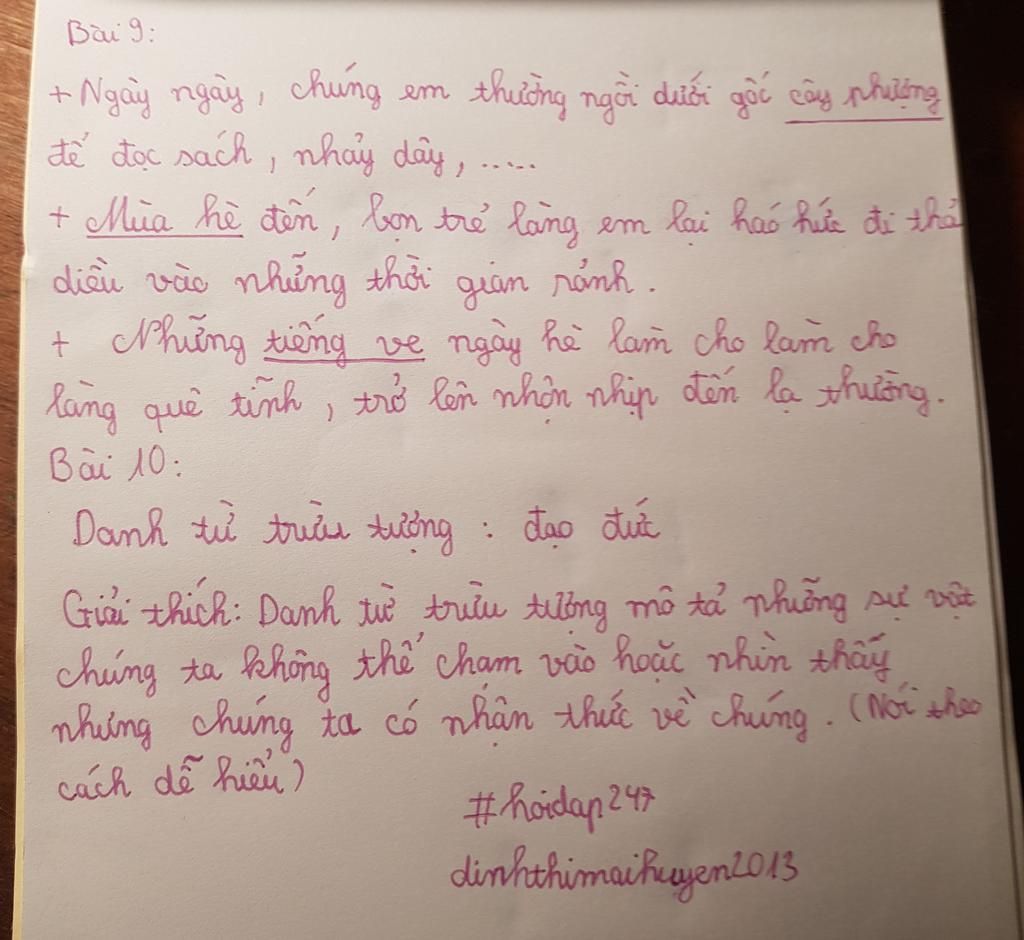 Bài 9:
+ Ngày ngày, chúng em thường ngồi dưới gốc cây phượng
để đọc sách, nhảy dây, .....
+ Mùa hè đến, bọn trẻ làng em lại háo hức đi thả
diều vào những thời gian rảnh.
+ Những tiếng ve ngày hè làm cho làm cho
làng quê tĩnh, trở lên nhộn nhịp đến lạ thường.
Bài 10:
Danh từ trừu tượng : đạo đức
Giải thích: Danh từ trừu tượng mô tả những sự vật
chúng ta không thể chạm vào hoặc nhìn thấy
nhưng chúng ta có nhận thức về chúng. (Nói theo
cách dễ hiểu)
#hoidap247
dinhthimaihuyen2013